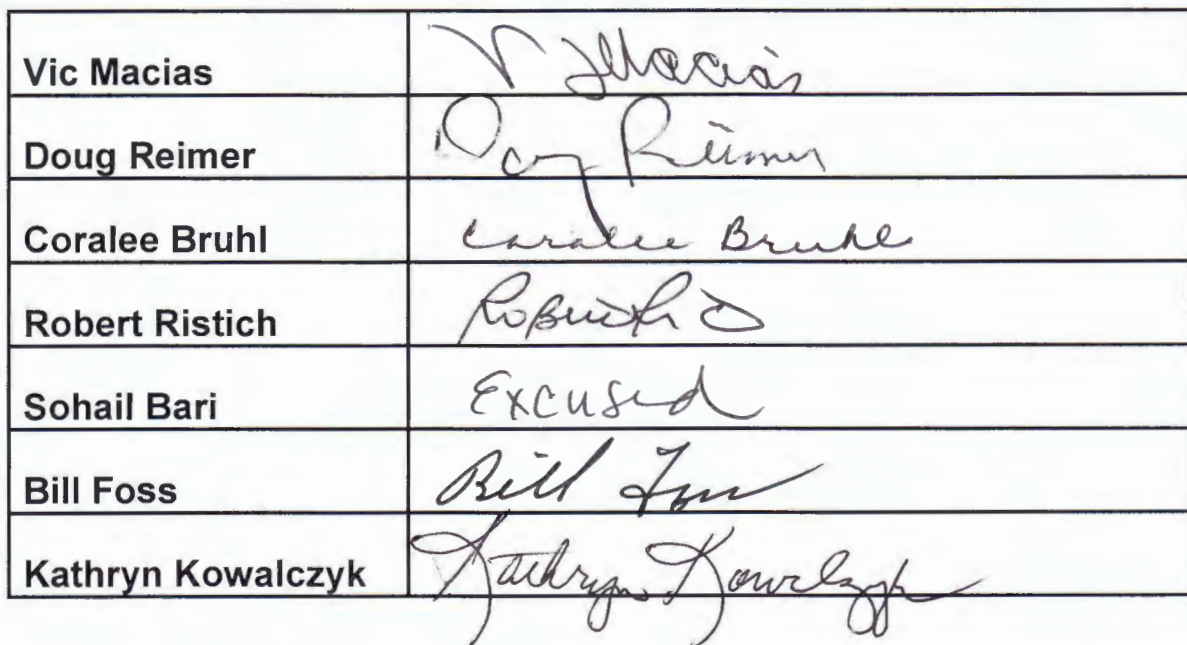 Vic Macias V J Macias
Doug Reimer Doug Reimer
Coralee Bruhl Coralee Bruhl
Robert Ristich Robert
Sohail Bari Excused
Bill Foss Bill Foss
Kathryn Kowalczyk Kathryn Kowalczyk